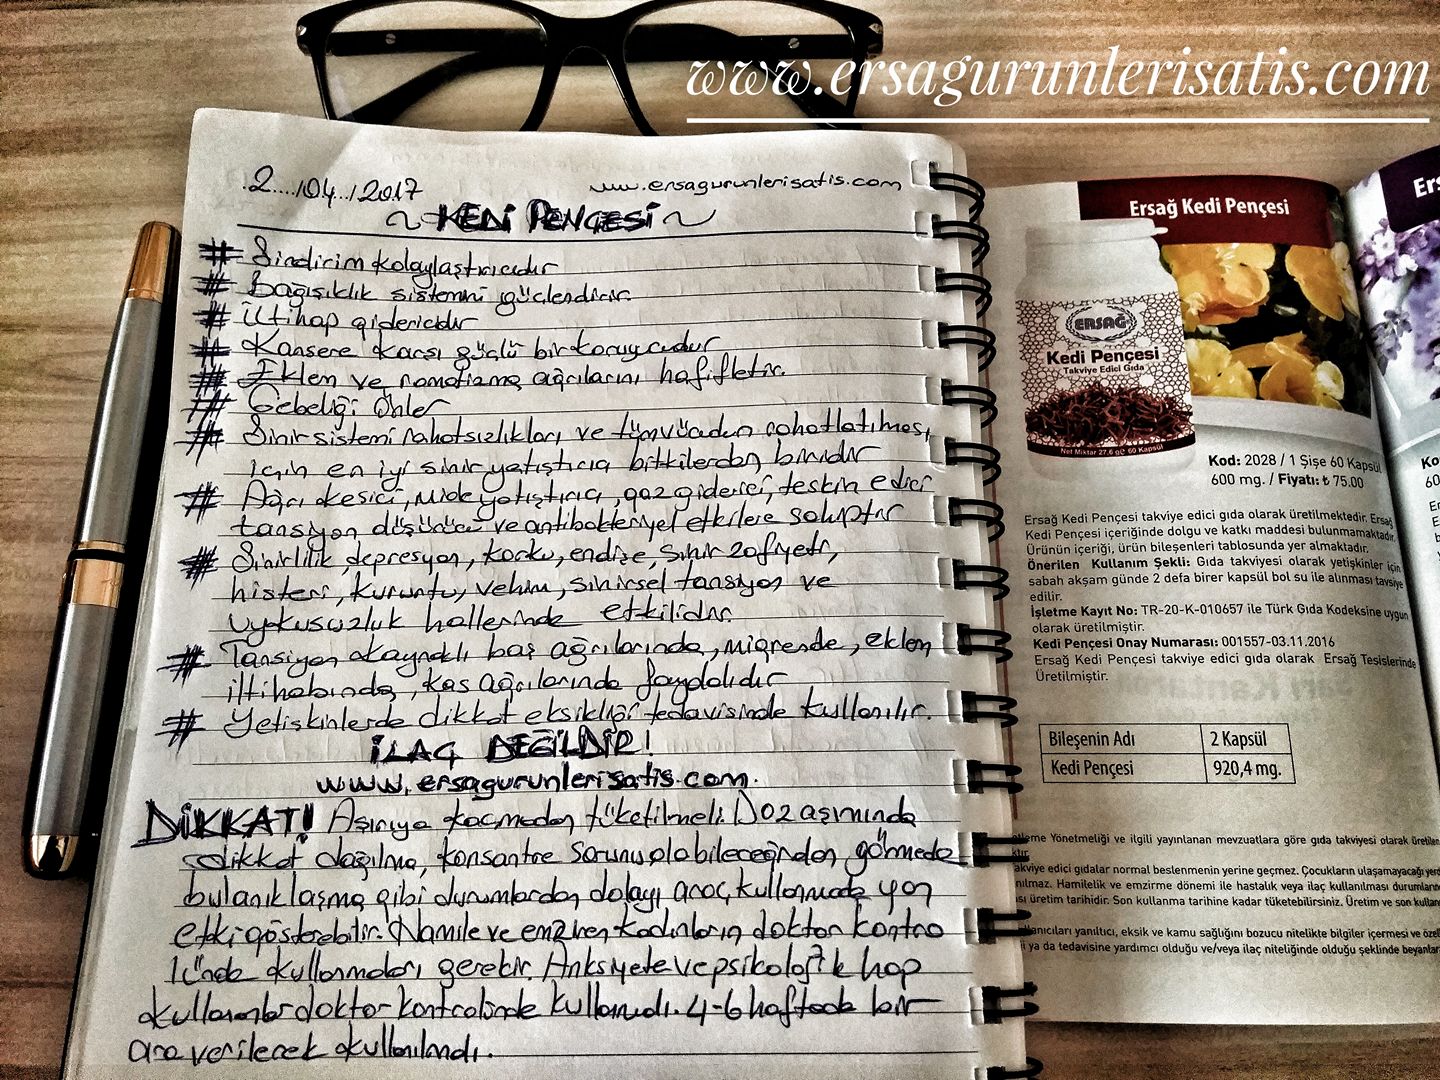 www.ersagurunlerisatis.com
2..../04../2017
www.ersagurunlerisatis.com
~ KEDİ PENÇESİ ~
# Sindirim kolaylaştırıcıdır
# Bağışıklık sistemini güçlendirir.
# İltihap gidericidir
# Kansere karşı güçlü bir koruyucudur
# Eklem ve romatizma ağrılarını hafifletir.
# Gebeliği önler
# Sinir sistemi rahatsızlıkları ve tüm vücudun rahatlatılması
için en iyi sinir yatıştırıcı bitkilerden biridir
# Ağrı kesici, mide yatıştırıcı, gaz giderici, teskin edici
tansiyon düşürücü ve antibakteriyel etkilere sahiptir
# Sinirlilik, depresyon, korku, endişe, sinir zafiyeti,
histeri, kuruntu, vehim, sinirsel tansiyon ve
uykusuzluk hallerinde etkilidir.
# Tansiyon kaynaklı baş ağrılarında, migrende, eklem
iltihabında, kas ağrılarında faydalıdır
# Yetişkinlerde dikkat eksikliği tedavisinde kullanılır.
İLAÇ DEĞİLDİR!
www.ersagurunlerisatis.com.
DİKKAT! Aşırıya kaçmadan tüketilmeli. Doz aşımında
dikkat dağılma, konsantre sorunu olabileceğinden, görmede
bulanıklaşma gibi durumlardan dolayı araç kullanmada yan
etki gösterebilir. Hamile ve emziren kadınların doktor kontro
lünde kullanmaları gerekir. Anksiyete ve psikolojik hap
kullananlar doktor kontrolünde kullanmalı. 4-6 haftada bir
ara verilerek kullanılmalı.
Ersağ Kedi Pençesi
ERSAĞ
Kedi Pençesi
Takviye Edici Gıda
Net Miktar 27,6 g℮ 60 Kapsül
Kod: 2028 / 1 Şişe 60 Kapsül
600 mg. / Fiyatı: ₺ 75.00
Ersağ Kedi Pençesi takviye edici gıda olarak üretilmektedir. Ersağ
Kedi Pençesi içeriğinde dolgu ve katkı maddesi bulunmamaktadır.
Ürünün içeriği, ürün bileşenleri tablosunda yer almaktadır.
Önerilen Kullanım Şekli: Gıda takviyesi olarak yetişkinler için
sabah akşam günde 2 defa birer kapsül bol su ile alınması tavsiye
edilir.
İşletme Kayıt No: TR-20-K-010657 ile Türk Gıda Kodeksine uygun
olarak üretilmiştir.
Kedi Pençesi Onay Numarası: 001557-03.11.2016
Ersağ Kedi Pençesi takviye edici gıda olarak Ersağ Tesislerinde
Üretilmiştir.
Bileşenin Adı 2 Kapsül
Kedi Pençesi 920,4 mg.
Yönetmeliği ve ilgili yayınlanan mevzuatlara göre gıda takviyesi olarak
edici gıdalar normal beslenmenin yerine geçmez. Çocukların ulaşamayacağı
Hamilelik ve emzirme dönemi ile hastalık veya ilaç kullanılması
üretim tarihidir. Son kullanma tarihine kadar tüketebilirsiniz. Üretim ve son
yanıltıcı, eksik ve kamu sağlığını bozucu nitelikte bilgiler içermesi ve
ya da tedavisine yardımcı olduğu ve/veya ilaç niteliğinde olduğu şeklinde